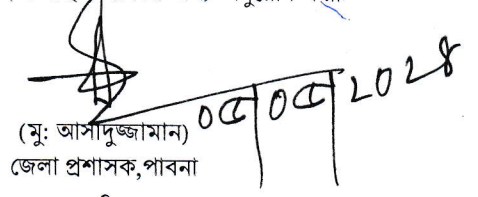 ০৫।০৫।২০২৪
(মু: আসাদুজ্জামান)
জেলা প্রশাসক,পাবনা